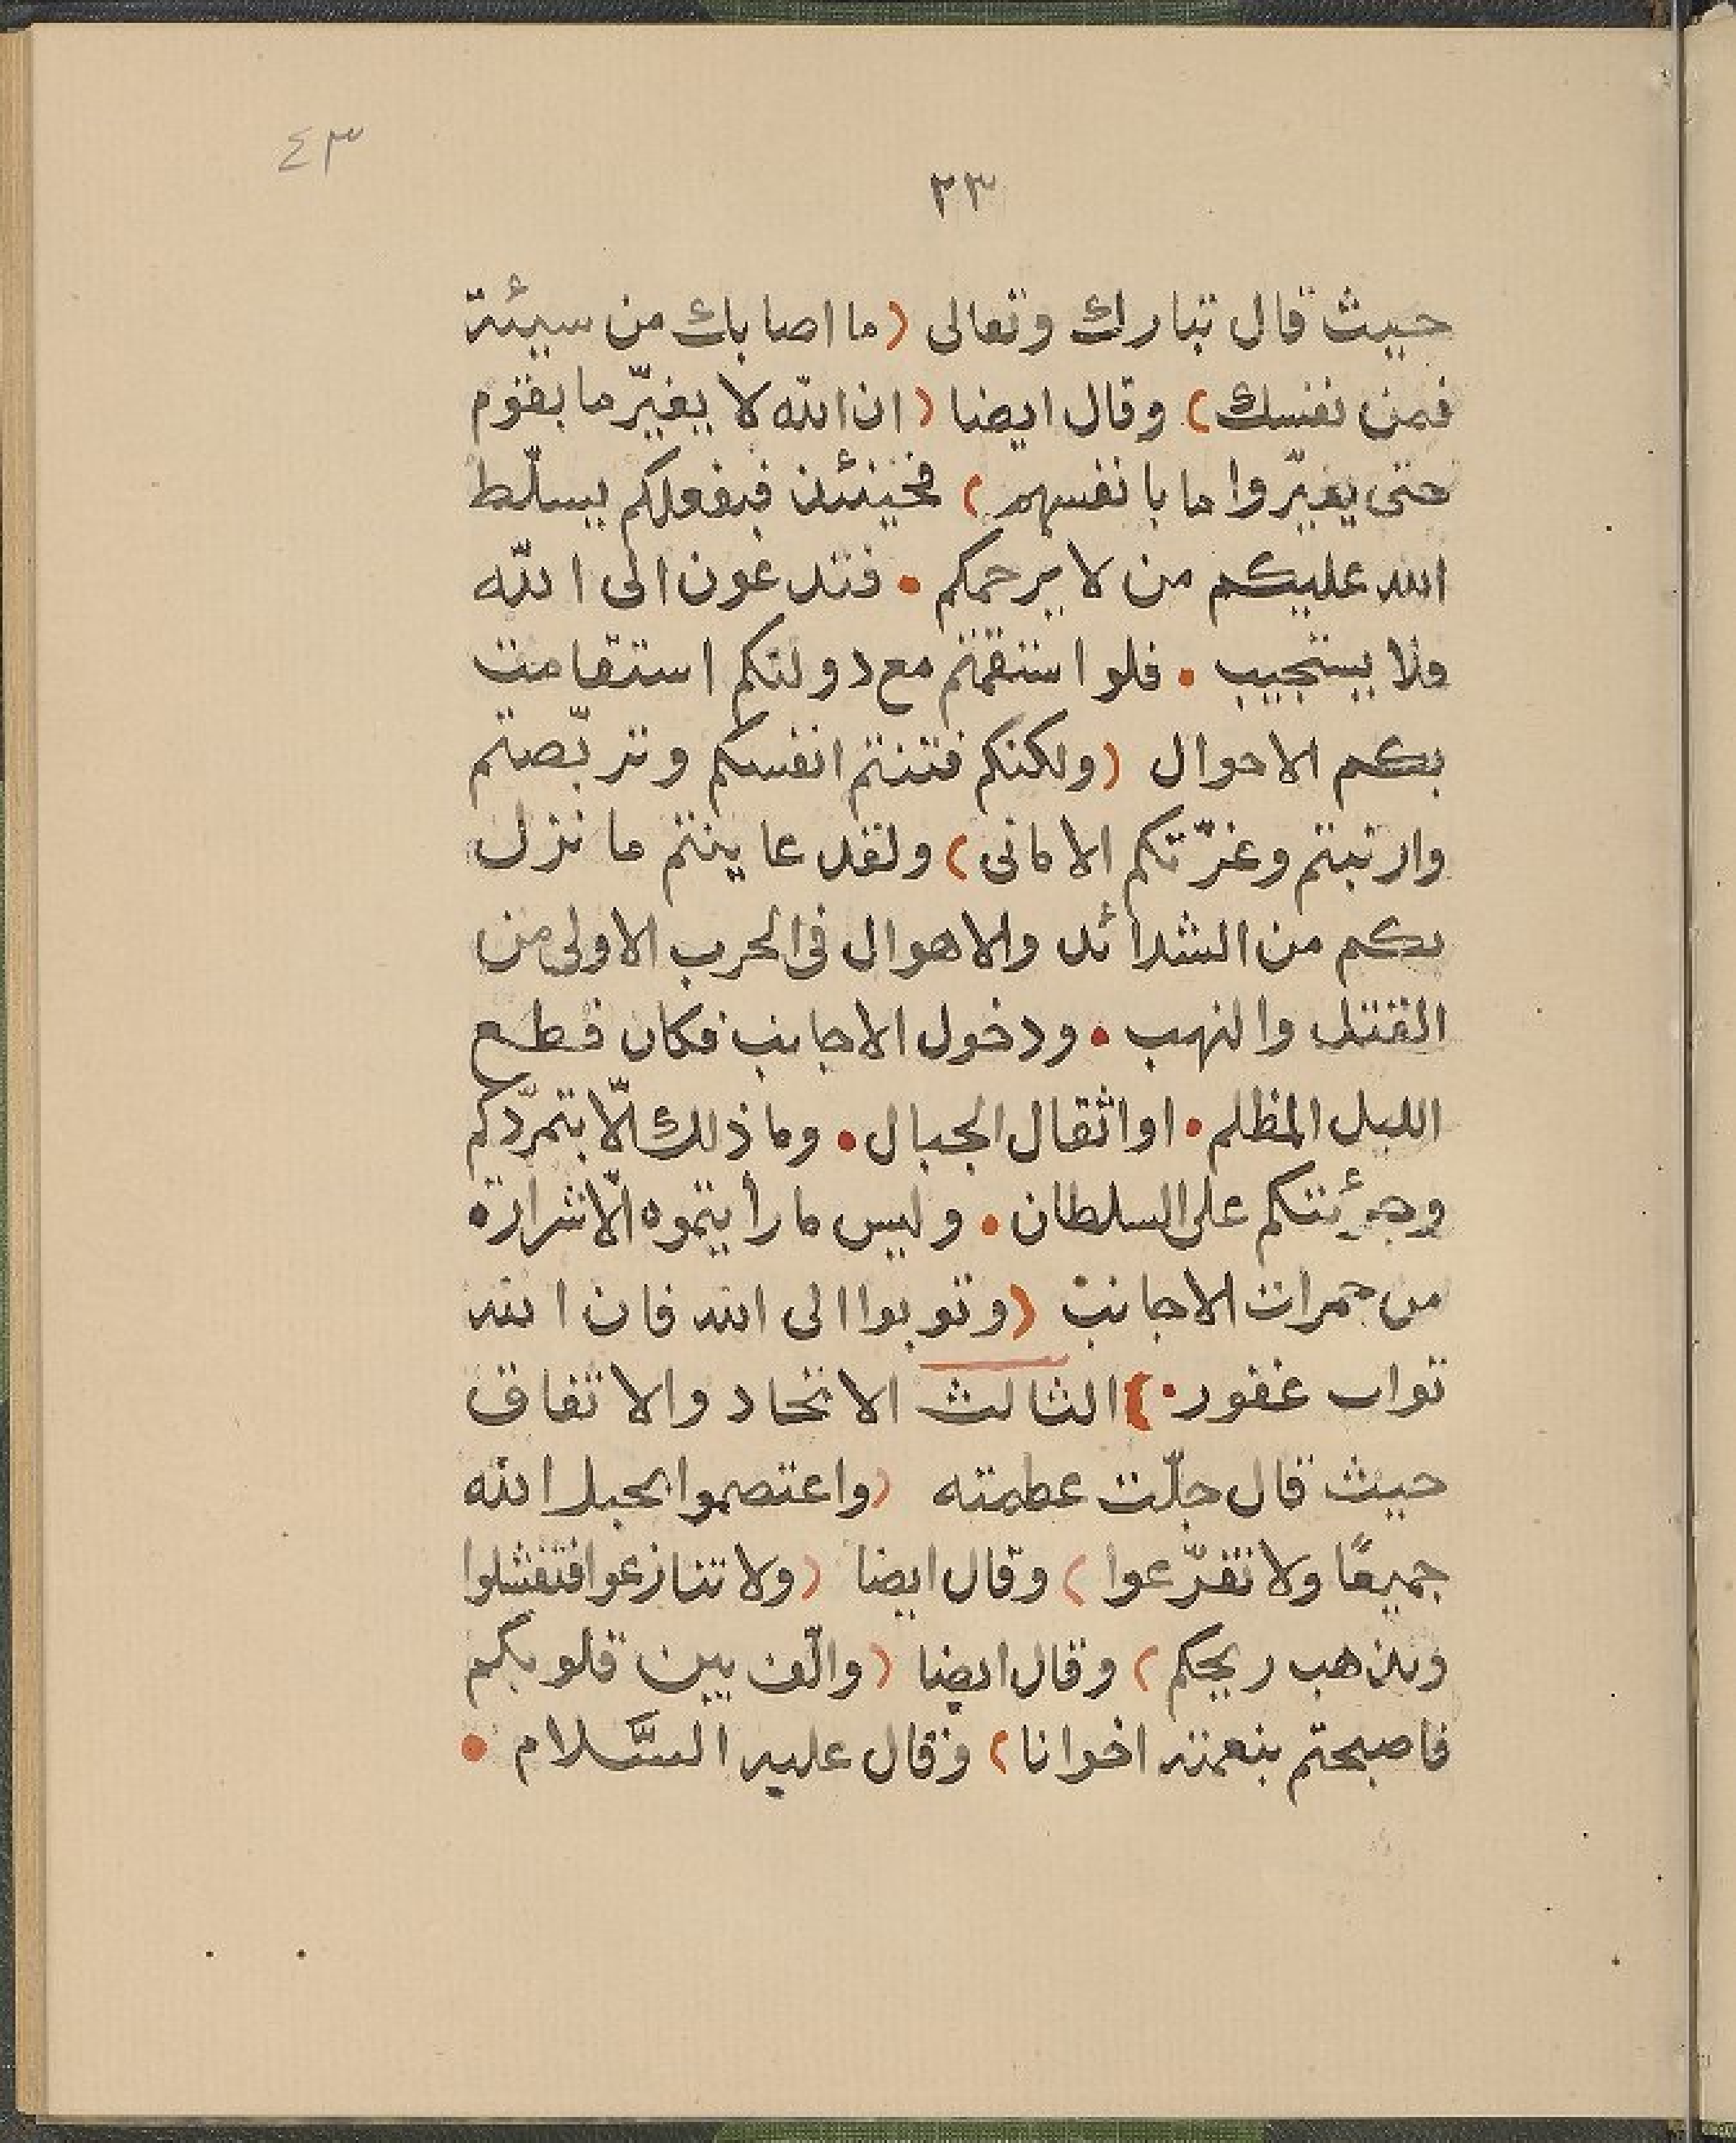 ٤٣
٢٣
حيث قال تبارك وتعالى (ما اصابك من سيئة
فمن نفسك) وقال ايضا (ان الله لا يغيّر ما بقوم
حتى يغيّروا ما بانفسهم) فحينئذ فبفعلكم يسلّط
الله عليكم من لا يرحمكم • فتدعون الى الله
ولا يستجيب • فلو استقمتم مع دولتكم استقامت
بكم الاحوال (ولكنكم فتنتم انفسكم وتربّصتم
وارتبتم وغرّتكم الامانى) ولقد عاينتم ما نزل
بكم من الشدائد والاهوال فى الحرب الاولى من
القتل والنهب • ودخول الاجانب فكان قطع
الليل المظلم • او اثقال الجبال • وما ذلك الّا بتمرّدكم
وجرئتكم على السلطان • وليس ما رأيتموه الّا شرارة
من جمرات الاجانب (وتوبوا الى الله فان الله
تواب غفور •) الثالث الاتحاد والاتفاق
حيث قال جلّت عظمته (واعتصموا بحبل الله
جميعًا ولا تفرّعوا) وقال ايضا (ولا تنازعوا فتفشلوا
وتذهب ريحكم) وقال ايضا (والّف بين قلوبكم
فاصبحتم بنعمته اخوانا) وقال عليه السَّلام •